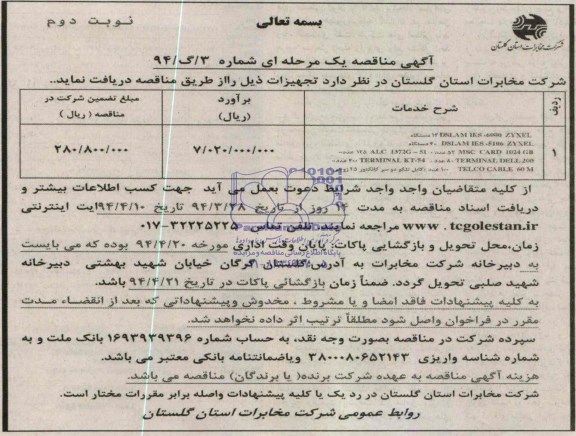 بسمه تعالی
نوبت دوم
شرکت مخابرات استان گلستان
آگهی مناقصه یک مرحله ای شماره ۹۴/گ/۳
شرکت مخابرات استان گلستان در نظر دارد تجهیزات ذیل رااز طریق مناقصه دریافت نماید..
ردیف
شرح خدمات
برآورد (ریال)
مبلغ تضمین شرکت در مناقصه ( ریال )
۱
DSLAM IES -6000 ZYXEL
DSLAM IES -5106 ZYXEL
MSC CARD 1024 GB
ALC 1372G - 51
TERMINAL DELL 209
TERMINAL KT-54
TELCO CABLE 60 M
۷/۰۲۰/۰۰۰/۰۰۰
۲۸۰/۸۰۰/۰۰۰
از کلیه متقاضیان واجد واجد شرایط دعوت بعمل می آید جهت کسب اطلاعات بیشتر و
دریافت اسناد مناقصه به مدت ۱۴ روز از تاریخ ۹۴/۳/۲۸ تاریخ ۹۴/۴/۱۰ ایت اینترنتی
www . tcgolestan.ir مراجعه نمایند. تلفن تماس ۳۲۲۲۵۲۲۵-۰۱۷
زمان،محل تحویل و بازگشایی پاکات: پایان وقت اداری مورخه ۹۴/۴/۲۰ بوده که می بایست
به دبیرخانه شرکت مخابرات به آدرس گلستان گرگان خیابان شهید بهشتی دبیرخانه
شهید صلبی تحویل گردد. ضمناً زمان بازگشائی پاکات در تاریخ ۹۴/۴/۲۱ باشد.
به کلیه پیشنهادات فاقد امضا و یا مشروط ، مخدوش وپیشنهاداتی که بعد از انقضاء مدت
مقرر در فراخوان واصل شود مطلقاً ترتیب اثر داده نخواهد شد.
سپرده شرکت در مناقصه بصورت وجه نقد، به حساب شماره ۱۶۹۳۹۳۹۳۹۶ بانک ملت و به
شماره شناسه واریزی ۳۸۰۰۰۸۰۶۵۲۱۴۳ ویاضمانتنامه بانکی معتبر می باشد.
هزینه آگهی مناقصه به عهده شرکت برنده( یا برندگان) مناقصه می باشد.
شرکت مخابرات استان گلستان در رد یک یا کلیه پیشنهادات واصله برابر مقررات مختار است.
روابط عمومی شرکت مخابرات استان گلستان